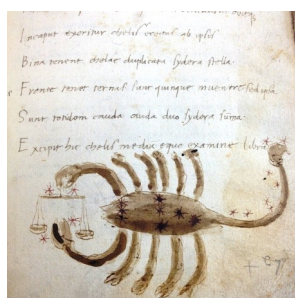 Incaput exoritur chelis erectus ab ipsis
Bina tenent chelae duplicata sydera stella
Fronte tenet ternas sunt quinque in ventre sed ipsa
Sunt totidem cauda duo sydera summa
Excipit hic chelis media equo examine libra